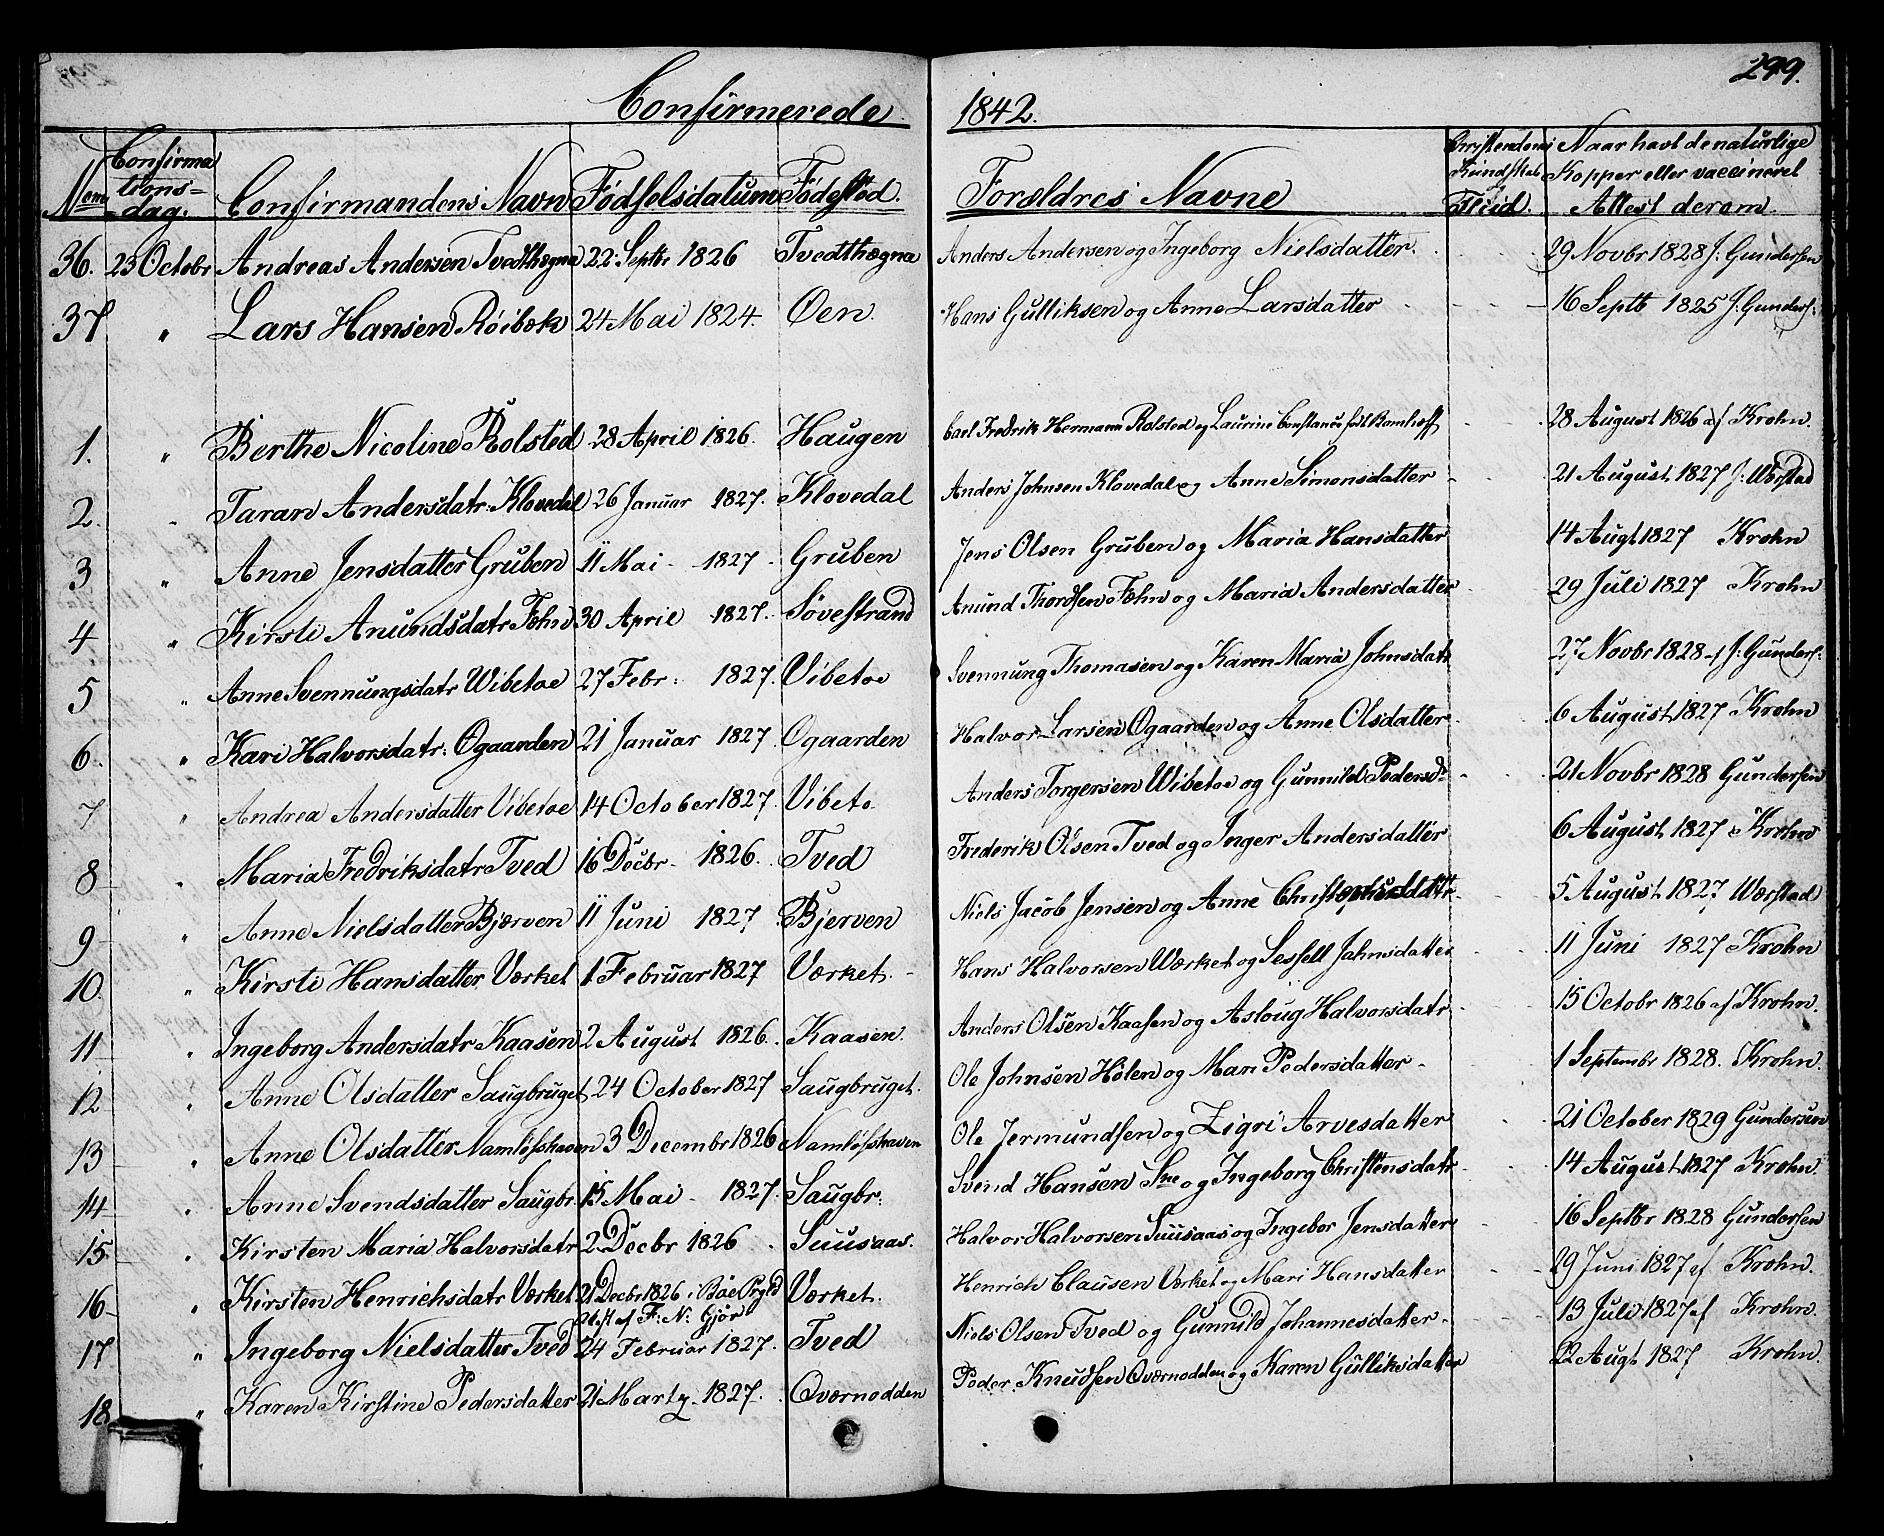 299.
Confirmerede 1842.
Num Confirmationsdag. Confirmandens Navn Fødselsdatum Fødested. Forældres Navne Christendoms Kundskab & Flid. Naar havt de naturlige Kopper eller vaccineret Attest derom.
36. 23 Octobr Andreas Andersen Tvedthægna 22 Septbr 1826 Tvedthægna Anders Andersen og Ingeborg Nielsdatter. 29 Novbr 1828 J: Gundersen
37 " Lars Hansen Röibæk 24 Mai 1824. Øen. Hans Gulliksen og Anne Larsdatter 16 Septb 1825 J: Gunders:
1. " Berthe Nicoline Rolsted 28 April 1826. Haugen Carl Fredrik Hermann Rolsted og Laurine Constance født Bomhoff 28 August 1826 af Krohn.
2. " Taran Andersdatr: Klovedal 26 Januar 1827. Klovedal Anders Johnsen Klovedal og Anne Simonsdatter 21 August 1827 J: Wørstad
3 " Anne Jensdatter Gruben 11 Mai 1827 Gruben Jens Olsen Gruben og Maria Hansdatter 14 Augt 1827 Krohn
4 " Kirsti Anundsdatr Fæhn 30 April 1827. Søvestrand Anund Thordsen Fæhn og Maria Andersdatter 29 Juli 1827 Krohn
5 " Anne Svennungsdatr Wibetoe 27 Febr: 1827. Vibetoe Svennung Thomasen og Karen Maria Johnsdatr 27 Novbr 1828 af J: Gunders:
6 " Kari Halvorsdatr: Øgaarden 21 Januar 1827. Øgaarden Halvor Larsen Øgaarden og Anne Olsdatter 6 August 1827 Krohn
7 " Andrea Andersdatter Vibetoe 14 October 1827. Vibeto Anders Torgersen Wibetoe og Gunnild Pedersdr 21 Novbr 1828 Gundersen
8 " Maria Fredriksdatr Tved 16 Decbr 1826. Tved Frederik Olsen Tved og Inger Andersdatter 6 August 1827 Krohn
9 " Anne Nielsdatter Bjerven 11 Juni 1827 Bjerven Niels Jacob Jensen og Anne Christophersdattr 5 August 1827 Wørstad
10. " Kirsti Hansdatter Værket 1 Februar 1827 Værket. Hans Halvorsen Værket og Sessell Jahnsdatter 11 Juni 1827 Krohn
11 " Ingeborg Andersdatr Kaasen 2 August 1826. Kaasen. Anders Olsen Kaasen og Asloug Halvorsdatr 15 Octobr 1826 af Krohn.
12 " Anne Olsdatter Saugbruget 24 October 1827 Saugbruget. Ole Johnsen Holen og Mari Pedersdatter 1 Septembr 1828. Krohn.
13 " Anne Olsdatter Namløshaven 3 Decembr 1826 Namløshaven Ole Jermundsen og Zigri Arvesdatter 21 October 1829 Gundersen
14 " Anne Svendsdatter Saugbr. 15 Mai 1827. Saugbr: Svend Hansen Sne og Ingeborg Christensdatr 14 August 1827 Krohn.
15 " Kirsten Maria Halvorsdatr 2 Decbr 1826 Suusaas. Halvor Halvorsen Suusaas og Ingebor Jensdatter 16 Septbr 1828 Gundersen
16 " Kirsten Henrichsdatr Værket 21 Decbr 1826 i Bøe Prgld Attst af F: N: Gjør Værket. Henrich Clausen Værket og Mari Hansdatter 29 Juni 1827 af Krohn.
17 " Ingeborg Nielsdatter Tved 24 Februar 1827. Tved Niels Olsen Tved og Gunnild Johannesdatter 13 Juli 1827 af Krohn.
18 " Karen Kirstine Pedersdatter 21 Martz 1827. Qværnodden Peder Knudsen Qværnodden og Karen Gulliksdatter 22 Augt 1827 Krohn.